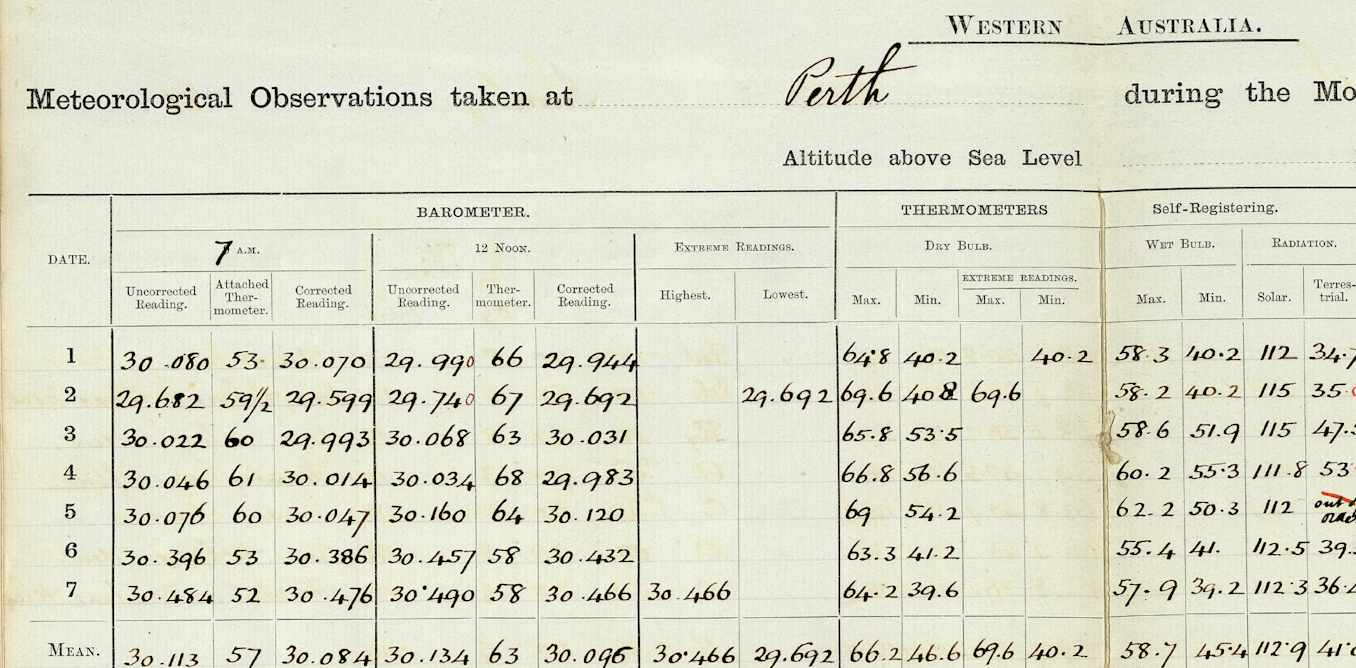 WESTERN AUSTRALIA.
Meteorological Observations taken at Perth during the Mo
Altitude above Sea Level
BAROMETER. THERMOMETERS Self-Registering.
DATE. 7 A.M. 12 NOON. EXTREME READINGS. DRY BULB. WET BULB. RADIATION.
EXTREME READINGS.
Uncorrected Reading. Attached Ther-mometer. Corrected Reading. Uncorrected Reading. Ther-mometer. Corrected Reading. Highest. Lowest. Max. Min. Max. Min. Max. Min. Solar. Terres-trial.
1 30.080 53. 30.070 29.990 66 29.944 64.8 40.2 40.2 58.3 40.2 112 34.7
2 29.682 59½ 29.599 29.740 67 29.692 29.692 69.6 40.8 69.6 58.2 40.2 115 35.0
3 30.022 60 29.993 30.068 63 30.031 65.8 53.5 58.6 51.9 115 47.
4 30.046 61 30.014 30.034 68 29.983 66.8 56.6 60.2 55.3 111.8 53
5 30.076 60 30.047 30.160 64 30.120 69 54.2 62.2 50.3 112 out
6 30.396 53 30.386 30.457 58 30.432 63.3 41.2 55.4 41. 112.5 39.
7 30.484 52 30.476 30.490 58 30.466 30.466 64.2 39.6 57.9 39.2 112.3 36.4
MEAN. 30.113 57 30.084 30.134 63 30.096 30.466 29.692 66.2 46.6 69.6 40.2 58.7 45.4 112.9 41.